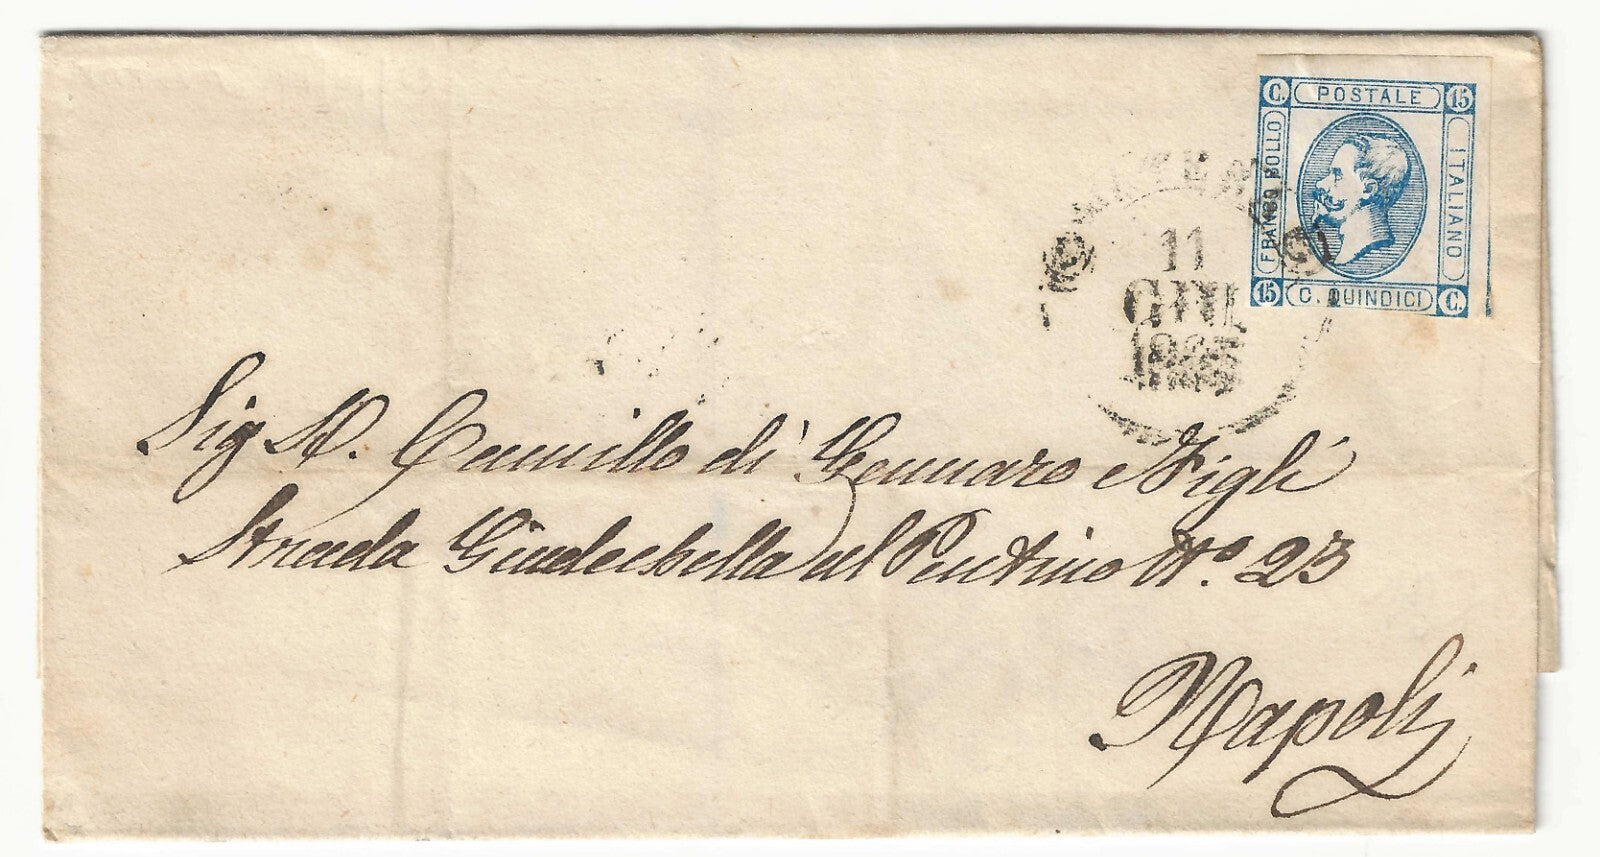 C. POSTALE 15
FRANCO BOLLO
ITALIANO
15 C. QUINDICI C.
11
GIU
Sig D. Camillo di Gennaro e Figli
Strada Giudechella al Pentino No. 23
Napoli